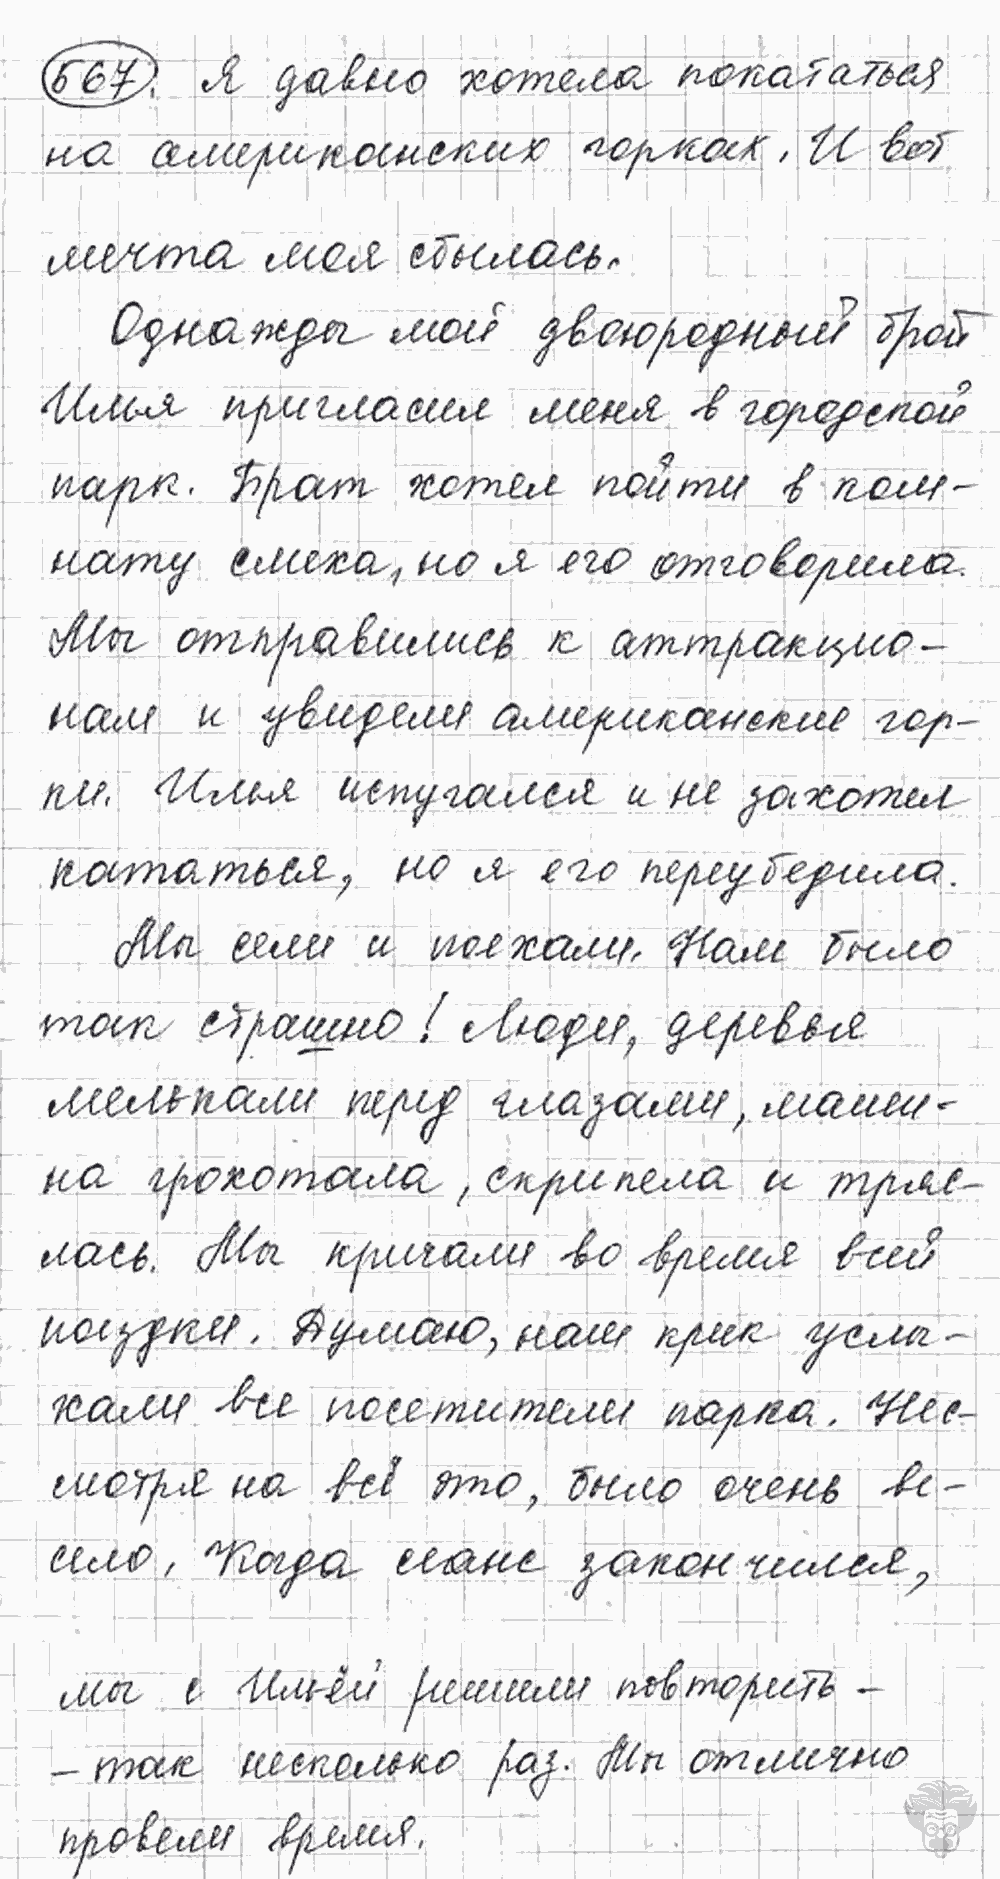 567. Я давно хотела покататься
на американских горках. И вот
мечта моя сбылась.
Однажды мой двоюродный брат
Илья пригласил меня в городской
парк. Брат хотел пойти в ком-
нату смеха, но я его отговорила.
Мы отправились к аттракцио-
нам и увидели американские гор-
ки. Илья испугался и не захотел
кататься, но я его переубедила.
Мы сели и поехали. Нам было
так страшно! Люди, деревья
мелькали перед глазами, маши-
на грохотала, скрипела и тряс-
лась. Мы кричали во время всей
поездки. Думаю, наш крик услы-
хали все посетители парка. Нес-
мотря на всё это, было очень ве-
село. Когда сеанс закончился,
мы с Ильёй решили повторить -
- так несколько раз. Мы отлично
провели время.